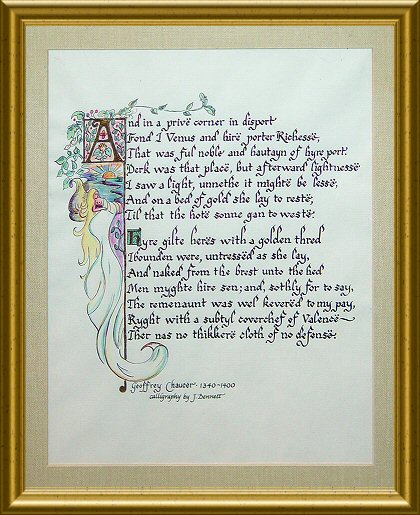 And in a privë corner in disport
Fond I Venus and hirë porter Richessë,
That was ful noble and hautayn of hyre port.
Derk was that placë, but afterward lightnessë
I saw a light, unnethe it mightë be lessë,
And on a bed of gold she lay to restë,
Til that the hotë sonne gan to westë.
Hyre giltë herës with a golden thred
Ibounden were, untressëd as she lay,
And naked from the brest unto the hed
Men myghtë hire sen; and, sothly for to say,
The remenaunt was wel keverëd to my pay,
Ryght with a subtyl coverchef of Valence
Ther nas no thikkerë cloth of no defensë.
Geoffrey Chaucer · 1340-1400
calligraphy by J. Bennett